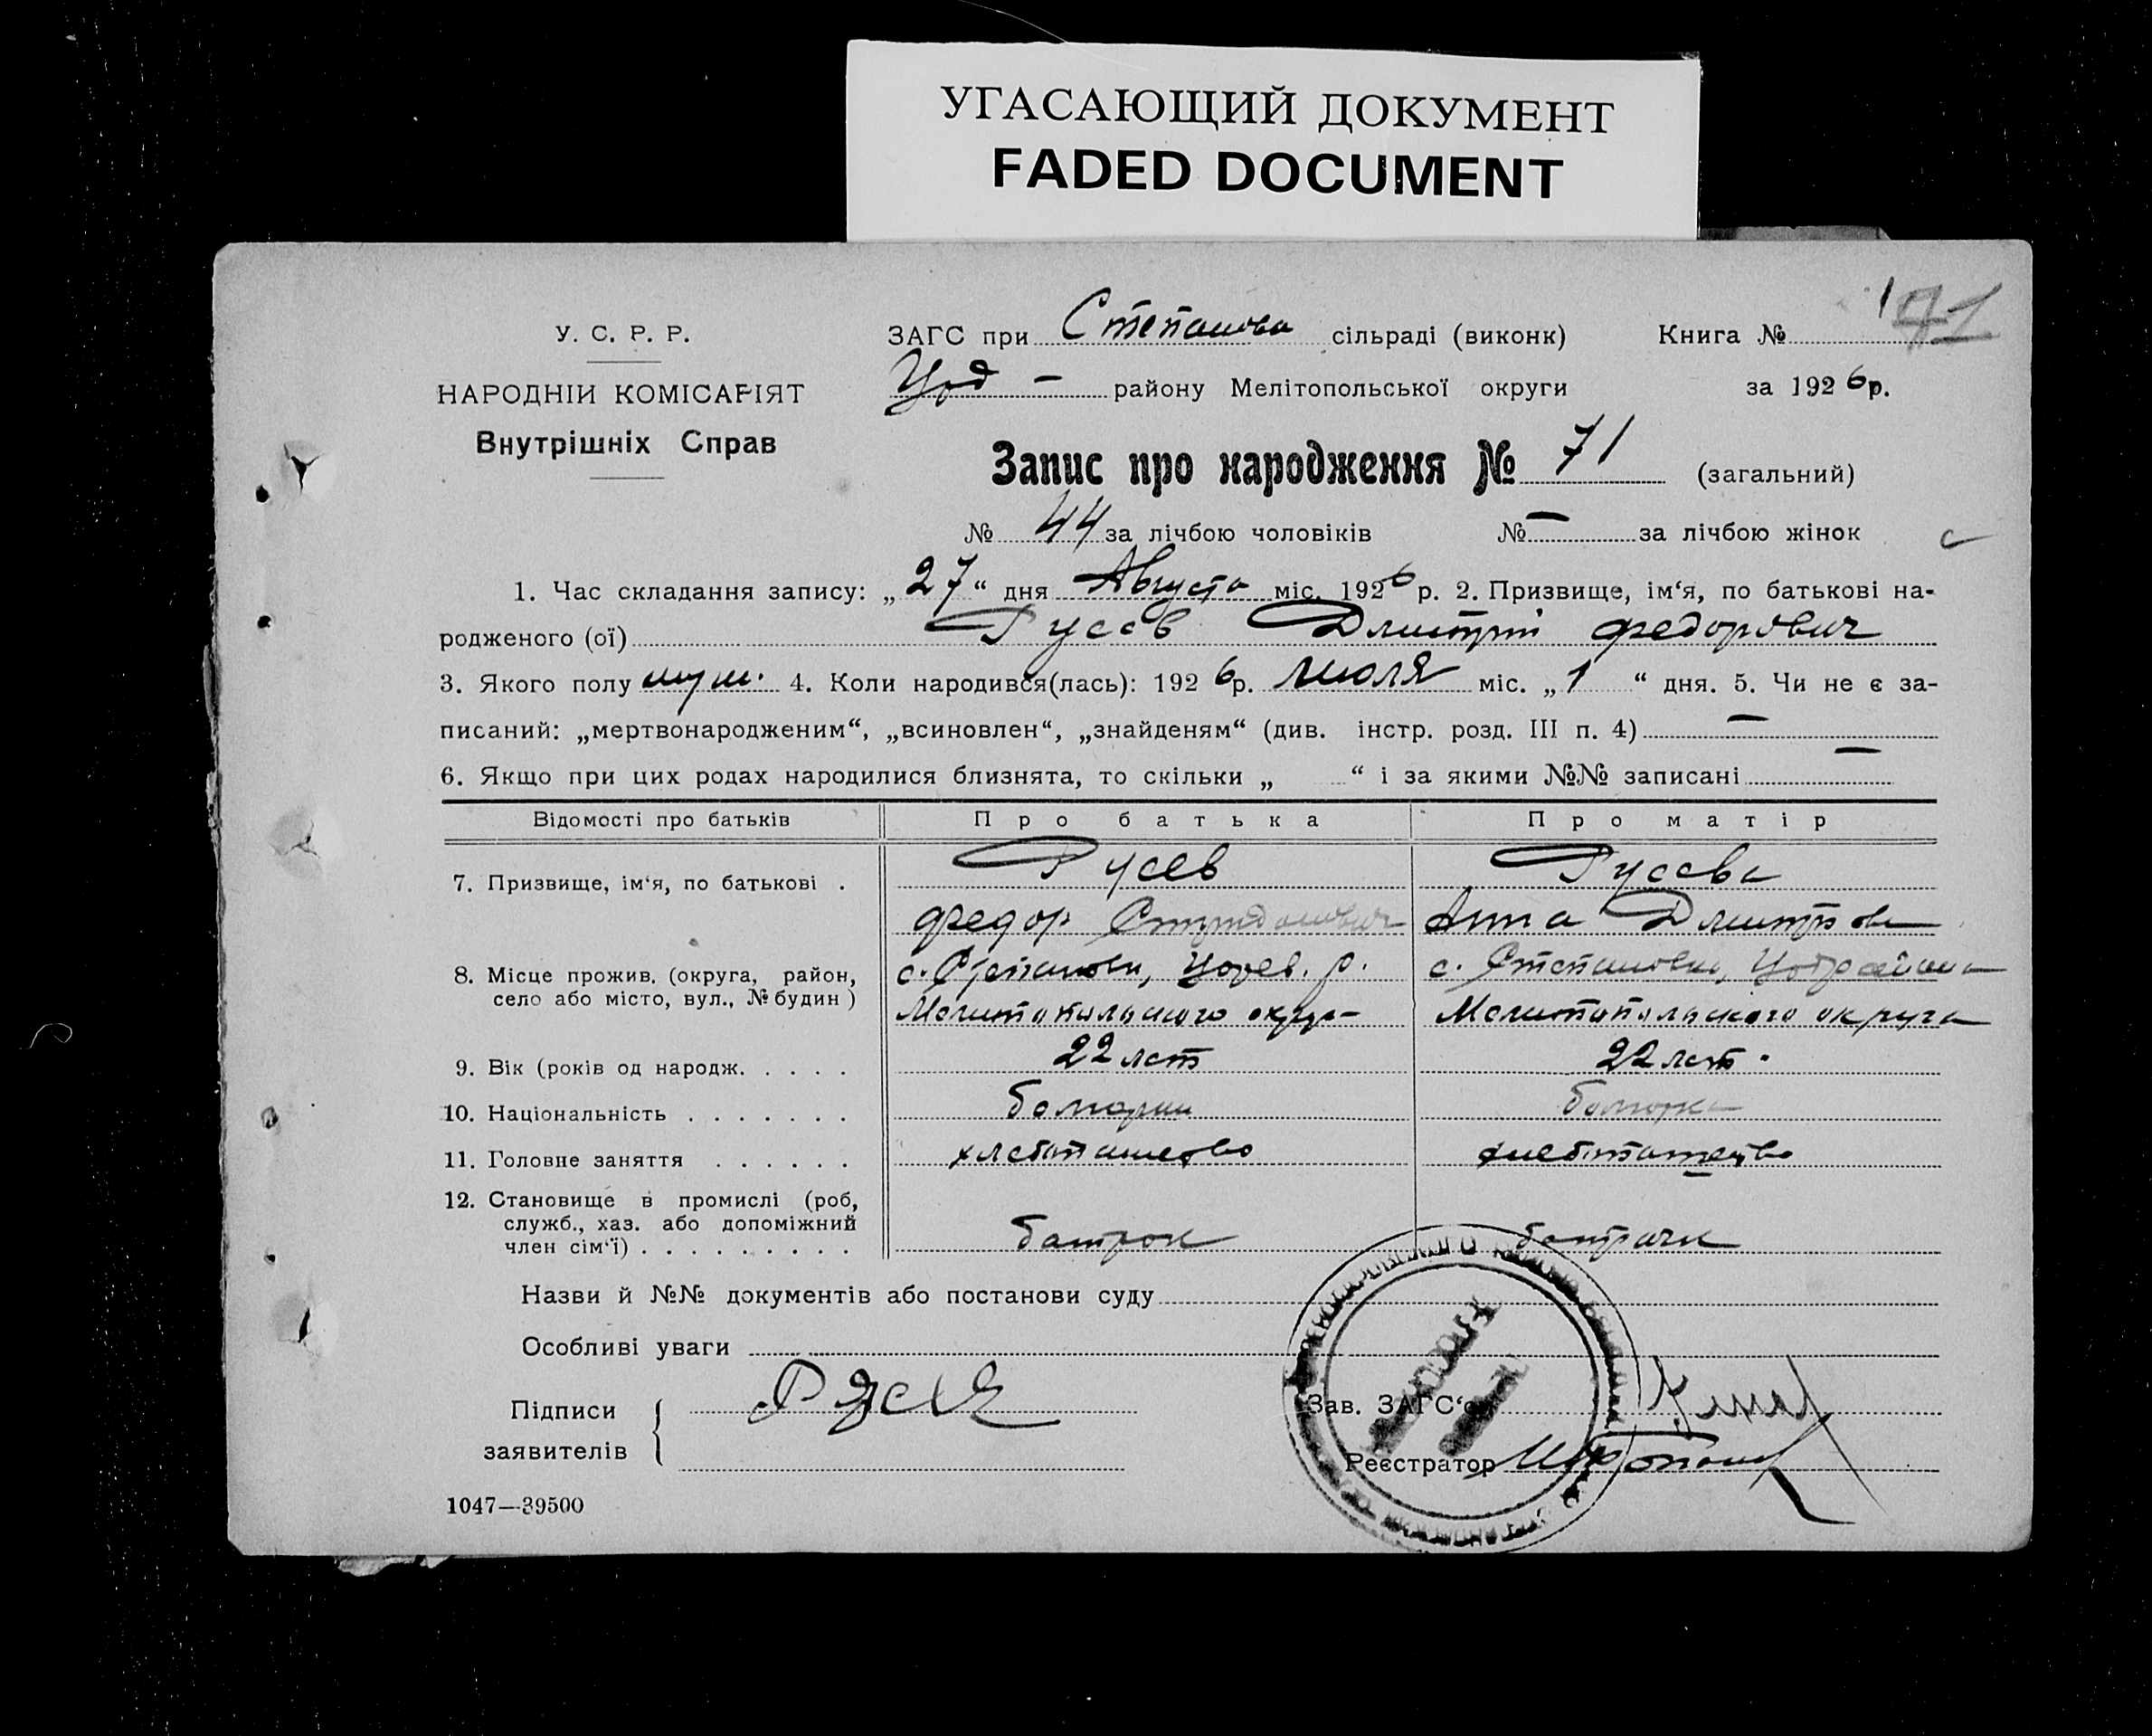 УГАСАЮЩИЙ ДОКУМЕНТ
FADED DOCUMENT
171
У. С. Р. Р.
ЗАГС при Степанова сільраді (виконк) Книга №
НАРОДНІИ КОМІСАРІЯТ
Внутрішніх Справ
Цод – району Мелітопольської округи за 1926р.
Запис про народження № 71 (загальний)
№ 44 за лічбою чоловіків № — за лічбою жінок
1. Час складання запису: „27“ дня Августа міс. 1926 р. 2. Призвище, ім‘я, по батькові на-
родженого (ої) Гусев Дмитрий Федорович
3. Якого полу муж. 4. Коли народився(лась): 1926р. июля міс. „1“ дня. 5. Чи не є за-
писаний: „мертвонародженим“, „всиновлен“, „знайденям“ (див. інстр. розд. III п. 4) —
6. Якщо при цих родах народилися близнята, то скільки „ “ і за якими №№ записані —
Відомості про батьків Про батька Про матір
7. Призвище, ім‘я, по батькові . Гусев Гусева
Федор Анна Дмитров
8. Місце прожив. (округа, район, с. Степановки, р. с. Степановки,
село або місто, вул., № будин ) Мелитопольского округа Мелитопольского округа
9. Вік (років од народж. . . . . 22 лет 22 лет.
10. Національність . . . . . . . болгарин болгарка
11. Головне заняття . . . . . . хлебопашество хлебопашество
12. Становище в промислі (роб,
служб., хаз. або допоміжний
член сім‘ї) . . . . . . . . . батрак батрачка
Назви й №№ документів або постанови суду
Особливі уваги
Підписи
заявителів
Зав. ЗАГС‘ом
Реєстратор
1047—39500